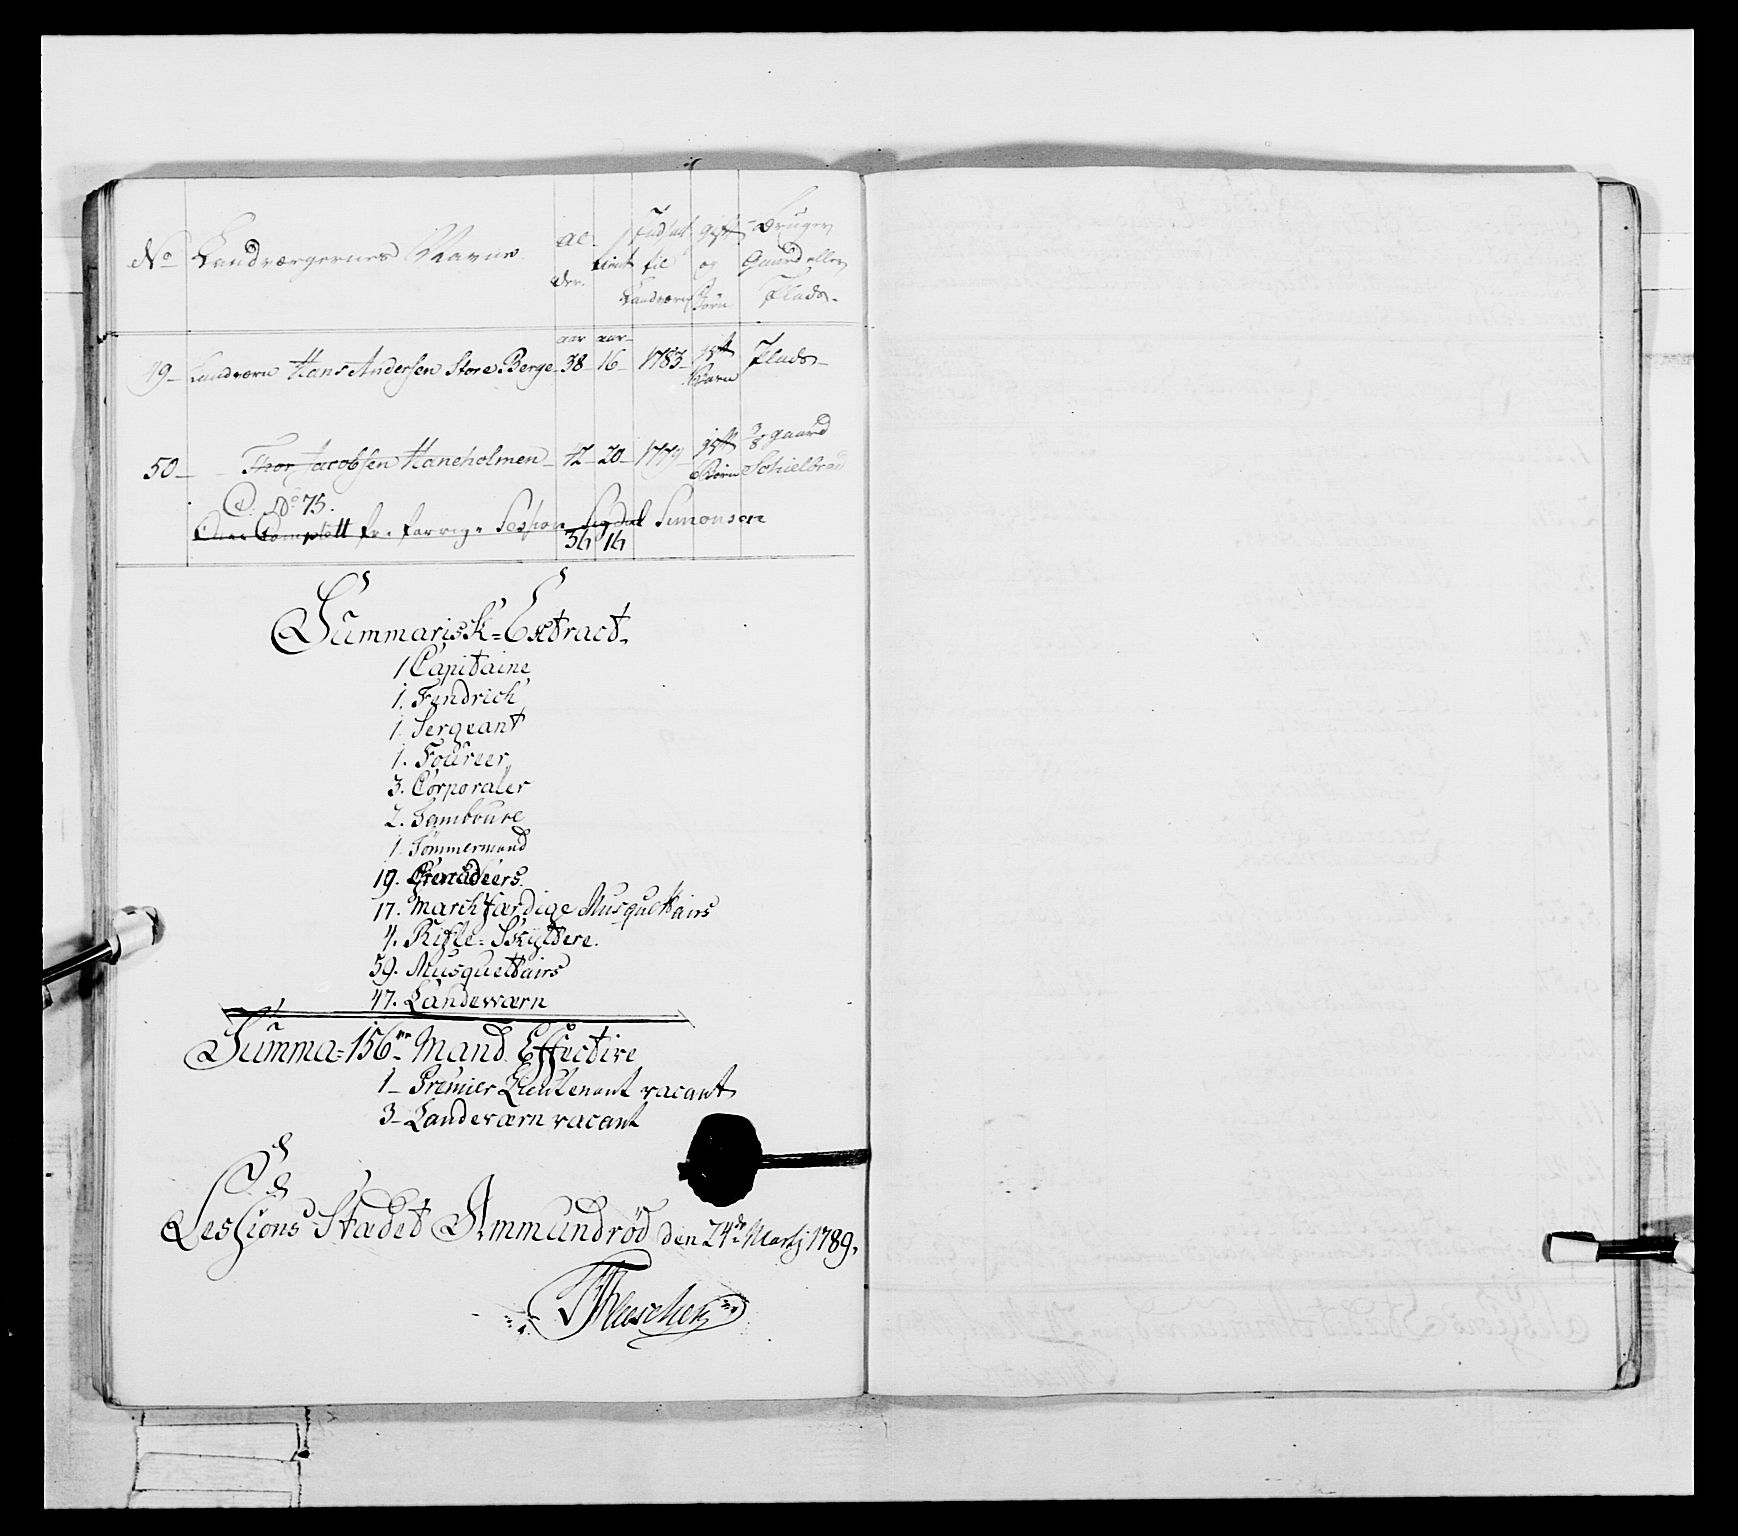 No Landværgernes Navne al- der. tient Indsat til Landværn gift og Børn Bruger Gaard eller Plads.
aar aar
49 Landværn Hans Andersen Store Berge 38 16 1783 gift Barn Plads
50 Thor Jacobsen Haneholmen 42 20 1779 gift Børn 3/8 gaard Schielbred
C. No 75.
Over Complett fr. forrige Session Sigdal Simonsen
36 16
Summarisk=Extract.
1 Capitaine
1. Fendrich
1. Sergeant
1. Foureer
3. Corporaler
2. Tamboure
1. Tømmermand
19. Grenadeers.
17. Marchfærdige Musquettairs
4. Rifle=Skyttere.
59. Musquettairs
47. Landeværn
Summa=156 Mand Effective
1 Premier Lieutenant vacant
3 Landeværn vacant
Sessions-Stædet Ammundrød den 24de Martj 1789.